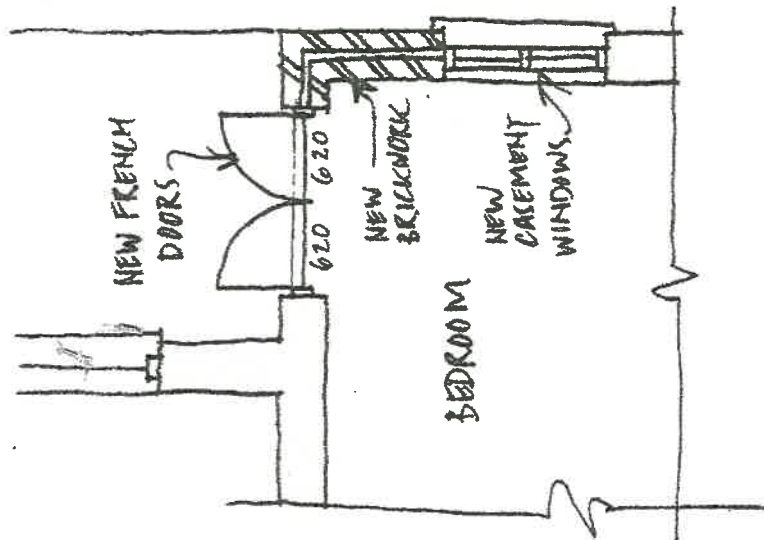 NEW FRENCH
DOORS
620 620
NEW
BRICKWORK
NEW
CASEMENT
WINDOWS
BEDROOM